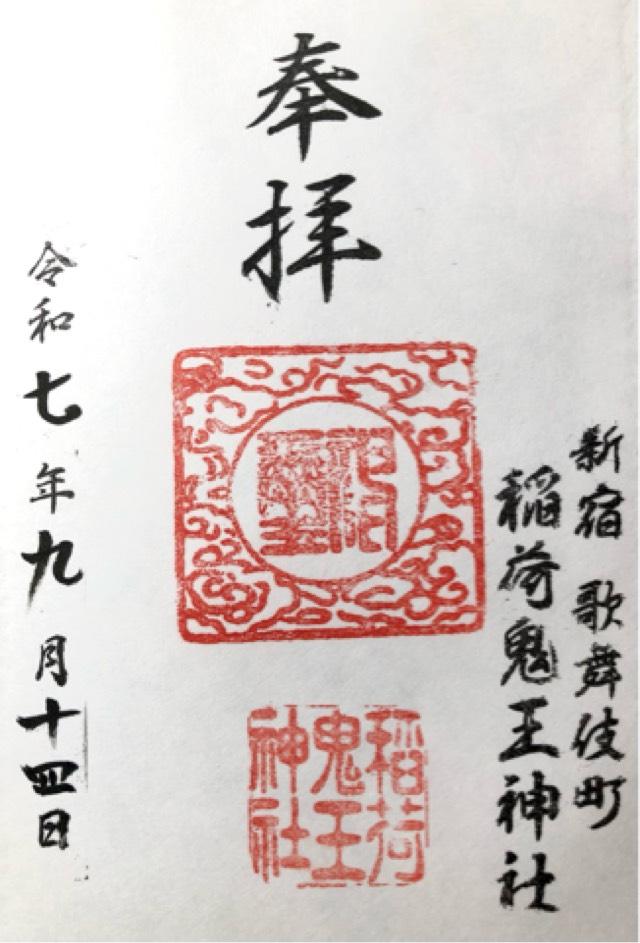 奉拝
新宿 歌舞伎町
稲荷鬼王神社
稲荷
鬼王
神社
令和七年九月十四日